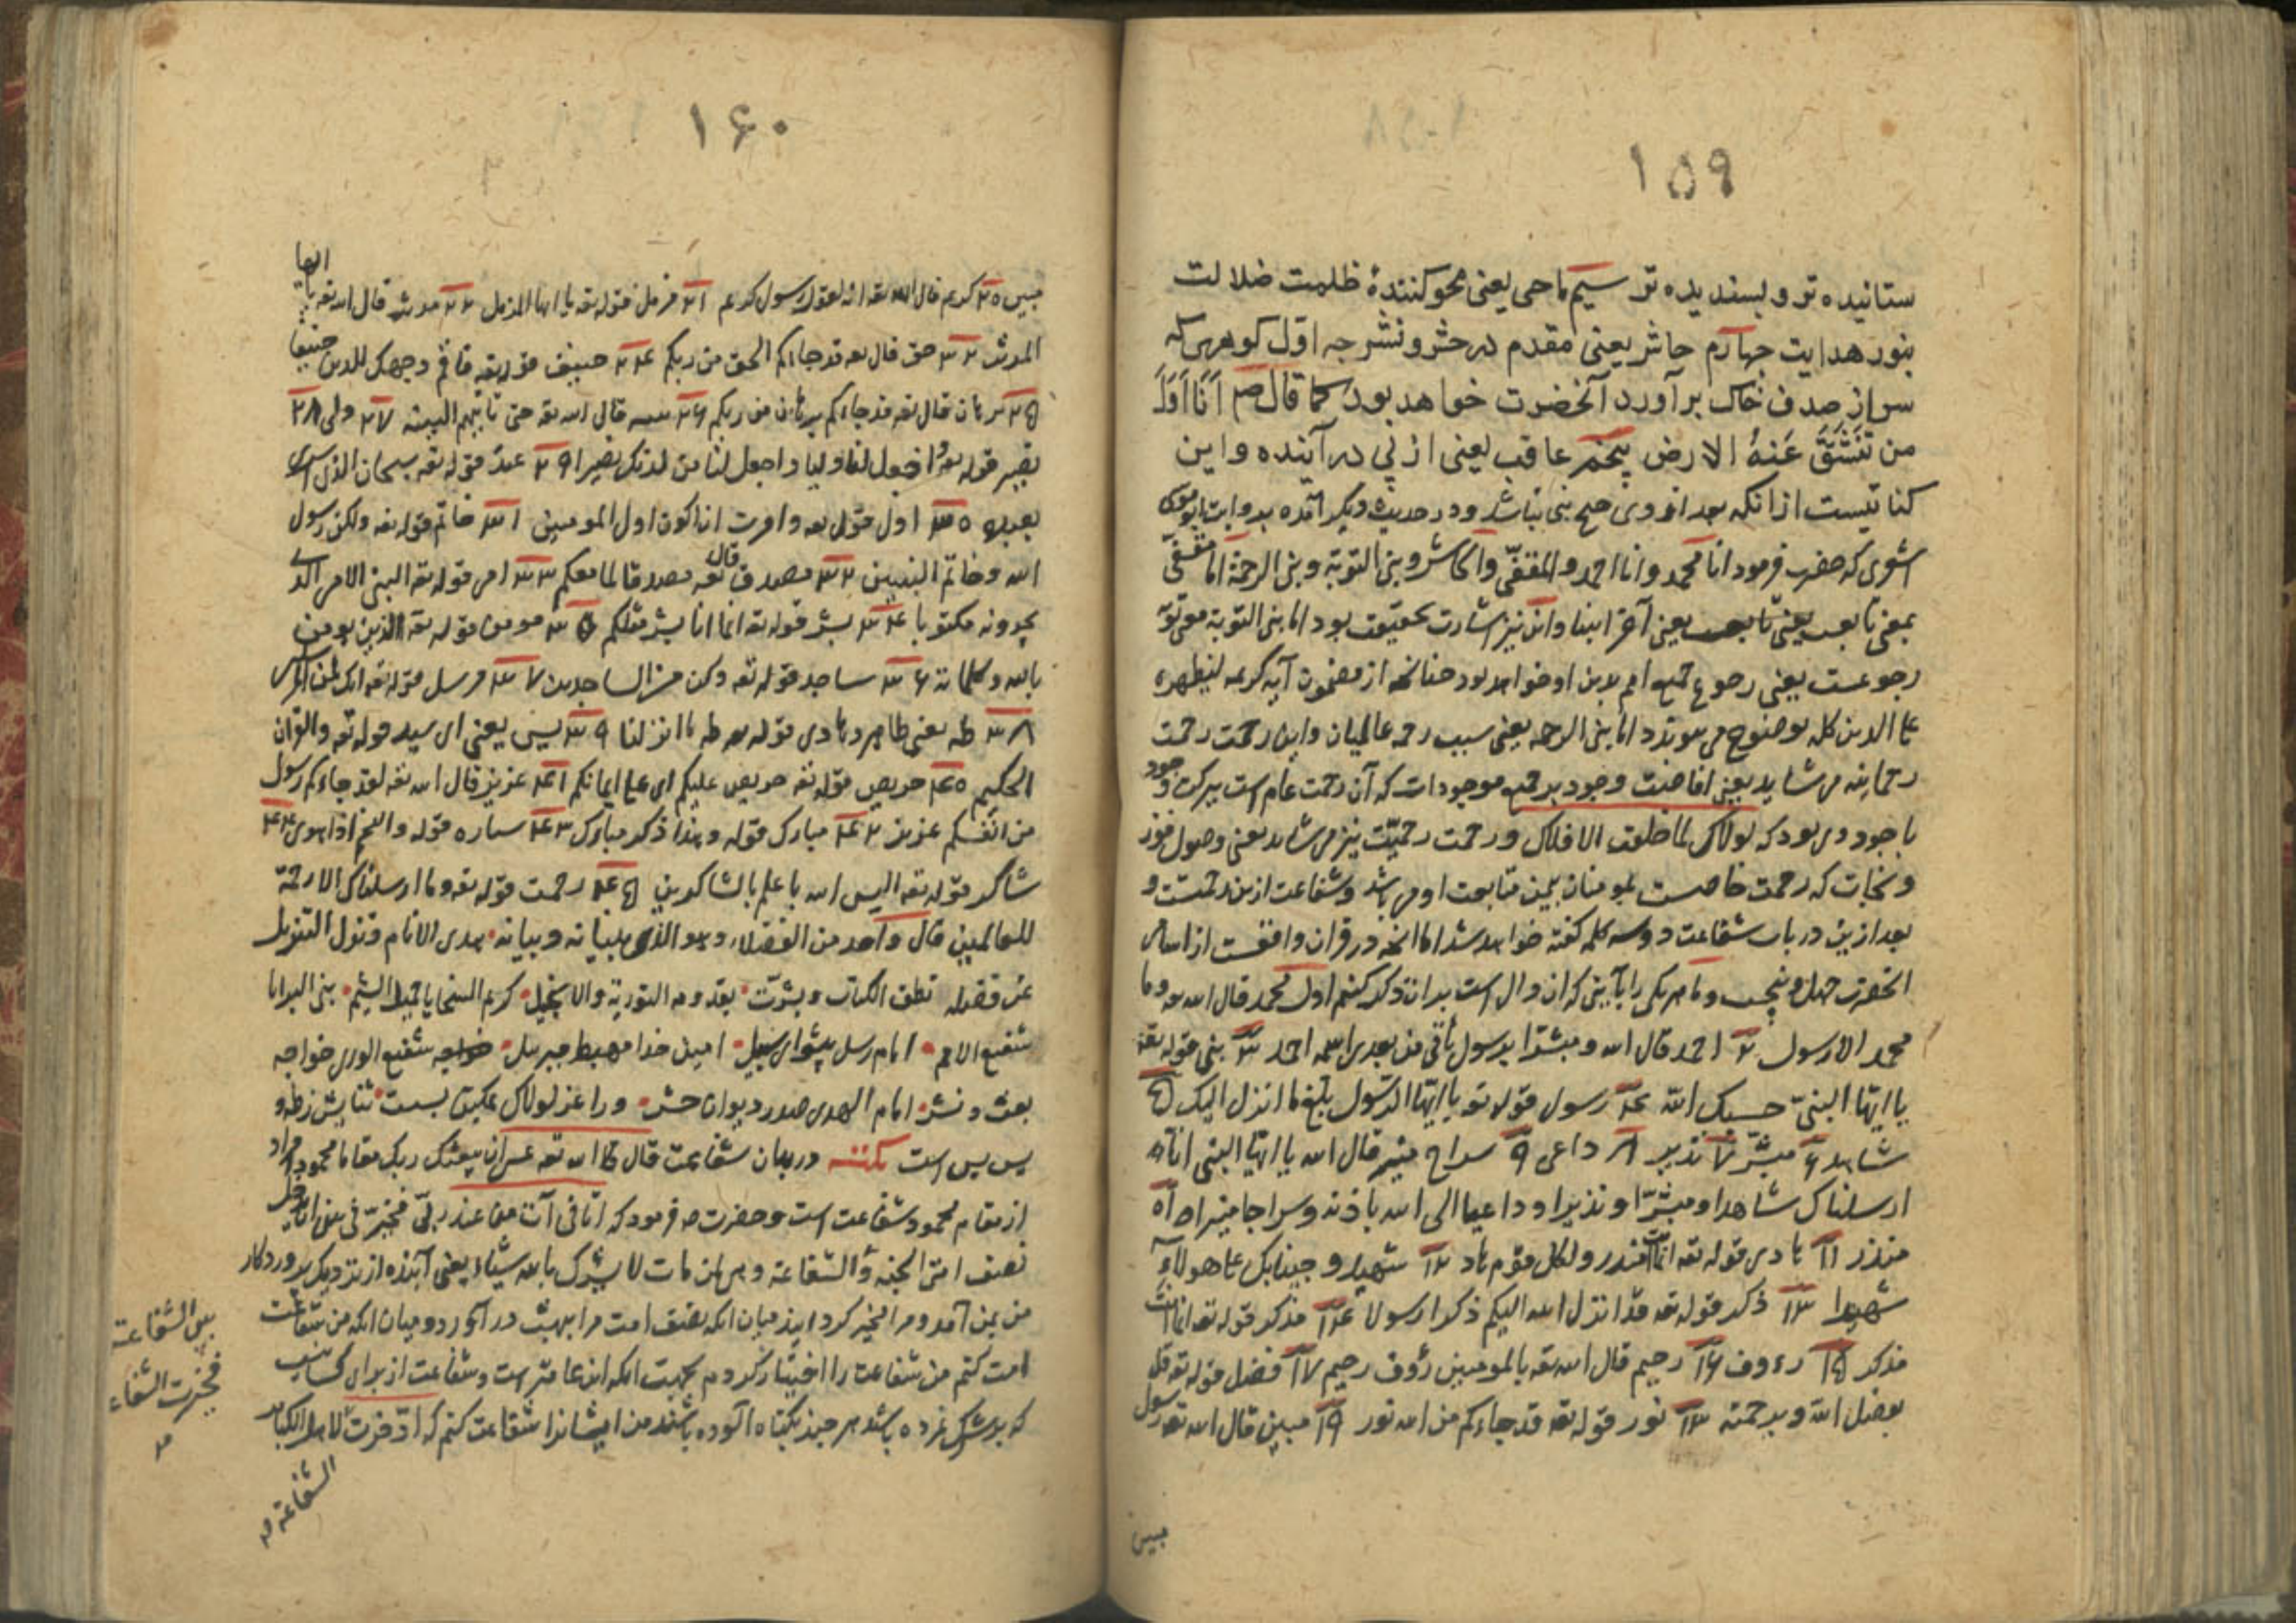 ۱۵۹
ستانیده تر و پسندیده تر سیم ماحی یعنی محو کنندهٔ ظلمت ضلالت
بنور هدایت چهارم حاشر یعنی مقدم در حشر و نشر چه اوّل کوهری که
سر از صدف خاک برآورد آنحضرت خواهد بود کما قال ص اَنَا اَوّلَ
من تَنشَقَّ عَنهُ الارض پنجم عاقب یعنی از پی در آینده و این
کنایتیست از انکه بعد از وی هیچ نبی نباشد و در حدیث دیگر آمده بروایت ابو موسی
اشعری که حضرت فرمود انا محمد و انا احمد و المقفّی و الحاشر و نبی التوبة و نبی الرحمة اما مقفّی
بمعنی تابعست یعنی آخر انبیا و این نیز اشارت بحقیقت بود اما نبی التوبة معنی توبه
رجوعست یعنی رجوع جمیع امم بدین او خواهد بود چنانچه از مضمون آیه کریمه لیظهره
علی الدین کله بوضوح می پیوندد اما نبی الرحمه یعنی سبب رحمه عالمیان و این رحمت رحمت
رحمانیه می شاید یعنی افاضت وجود بر جمیع موجودات که آن رحمت عام است ببرکت وجود
با جود وی بود که لولاک لما خلقت الافلاک و رحمت رحیمیّت نیز می شاید یعنی وصول فوز
و نجات که رحمت خاصست بمومنان بیمن متابعت او می باشد و شفاعت ازین رحمتست و
بعد ازین در باب شفاعت دو سه کلمه گفته خواهد شد اما انچه در قران واقعست از اسامی
انحضرت چهل و پنجست و ما هر یکی را بآیتی که ان دال است بران ذکر کنیم اول محمد قال الله تعه و ما
محمد الا رسول ۲ احمد قال الله و مبشّرا برسول یأتی من بعدی اسمه احمد ۳ نبی قوله تعه
یا ایّها النبیّ حسبک اللّه ۴ رسول قوله تعه یا ایّها الرّسول بلّغ ما انزل الیک ۵
شاهد ۶ مبشّر ۷ نذیر ۸ داعی ۹ سراج منیر قال الله یا ایّها النبی انا
ارسلناک شاهدا و مبشّرا و نذیرا و داعیا الی الله باذنه و سراجا منیرا ۱۰
منذر ۱۱ هادی قوله تعه انّما انت منذر و لکل قوم هاد ۱۲ شهید و جینا بک علی هولاء
شهیدا ۱۳ ذکر قوله تعه قد انزل الله الیکم ذکرا رسولا ۱۴ مذکر قوله تعه انما انت
مذکر ۱۵ رءوف ۱۶ رحیم قال الله تعه بالمومنین رؤف رحیم ۱۷ فضل قوله تعه قل
بفضل اللّه و برحمته ۱۸ نور قوله تعه قد جاءکم من الله نور ۱۹ مبین قال الله تعه رسول
مبین
۱۶۰
مبین ۲۰ کریم قال الله تعه انه لقول رسول کریم ۲۱ مزمل قوله تعه یا ایها المزمل ۲۲ مدثر قال الله تعه یا ایها
المدثر ۲۳ حق قال تعه قد جاءکم الحق من ربکم ۲۴ حنیف قوله تعه فاقم وجهک للدین حنیفا
۲۵ برهان قال تعه قد جاءکم برهان من ربکم ۲۶ بینه قال الله تعه حتی تاتیهم البینه ۲۷ ولی ۲۸
نصیر قوله تعه و اجعل لنا ولیا و اجعل لنا من لدنک نصیرا ۲۹ عبد قوله تعه سبحان الذی اسری
بعبده ۳۰ اول قوله تعه و امرت ان اکون اول المومنین ۳۱ خاتم قوله تعه و لکن رسول
الله و خاتم النبیین ۳۲ مصدق قال تعه مصدقا لما معکم ۳۳ امی قوله تعه النبی الامی الذی
یجدونه مکتوبا ۳۴ بشر قوله تعه انما انا بشر مثلکم ۳۵ مومن قوله تعه الذی یومن
بالله و کلماته ۳۶ ساجد قوله تعه و کن من الساجدین ۳۷ مرسل قوله تعه انک لمن المرسلین
۳۸ طه یعنی طاهر و هادی قوله تعه طه ما انزلنا ۳۹ یس یعنی ای سید قوله تعه و القرآن
الحکیم ۴۰ حریص قوله تعه حریص علیکم ای علی ایمانکم ۴۱ عزیز قال الله تعه لقد جاءکم رسول
من انفسکم عزیز ۴۲ مبارک قوله و هذا ذکر مبارک ۴۳ ستاره قوله و النجم اذا هوی ۴۴
شاکر قوله تعه الیس الله باعلم بالشاکرین ۴۵ رحمت قوله تعه و ما ارسلناک الا رحمة
للعالمین قال واحد من الفضلاء و هو الذی ببنیانه و بیانه هدی الانام و نزل التنزیل
عن فضله نطق الکتاب و بشرّت بقدومه التوریة و الانجیل کریم السجایا جمیل الشیم نبی البرایا
شفیع الامم امام رسل پیشوای سبیل امین خدا مهبط جبریل شفیع الوری خواجه
بعث و نشر امام الهدی صدر دیوان حشر ورا عز لولاک تمکین بست ثنایش ز طه و
یس بس است نکته در بیان شفاعت قال الله تعه عسی ان یبعثک ربک مقاما محمودا مراد
از مقام محمود شفاعت است و حضرت ص فرمود که اتانی آت من عند ربّی فخیّرنی بین ان یدخل
نصف امتی الجنه و الشفاعة و هی لمن مات لا یشرک بالله شیئا یعنی آینده از نزدیک پروردکار
من بمن آمد و مرا مخیر کردانید میان انکه نصف امت مرا ببهشت درآورد و میان انکه من شفاعت
امت کنم من شفاعت را اختیار کردم بجهت انکه ان عامتر است و شفاعت از برای کسانیست
که شرک نمرده باشد هر چند بکناه آلوده باشند من ایشانرا شفاعت کنم که ادّخرت لاهل الکبایر
بین الشفاعة
فخیرت الشفاء
الشفاعة